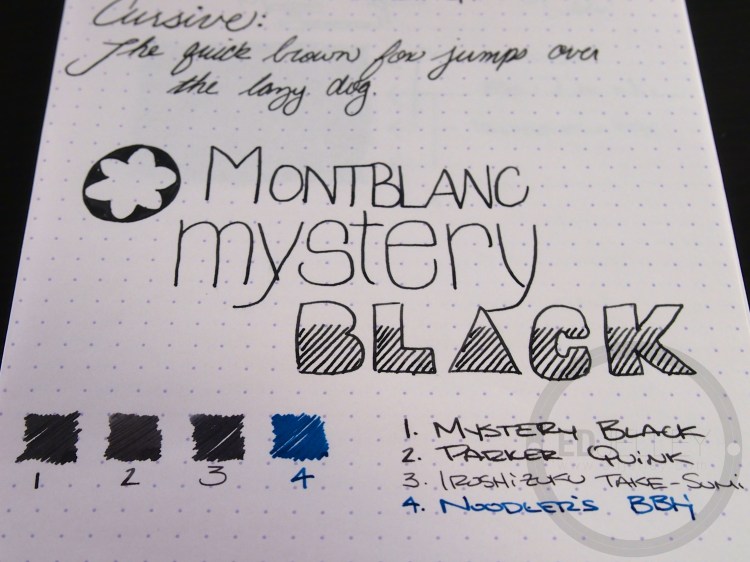 Cursive:
The quick brown fox jumps over
the lazy dog.
MONTBLANC
mystery
BLACK
1 2 3 4
1. MYSTERY BLACK
2. PARKER QUINK
3. IROSHIZUKU TAKE-SUMI
4. NOODLER'S BBH